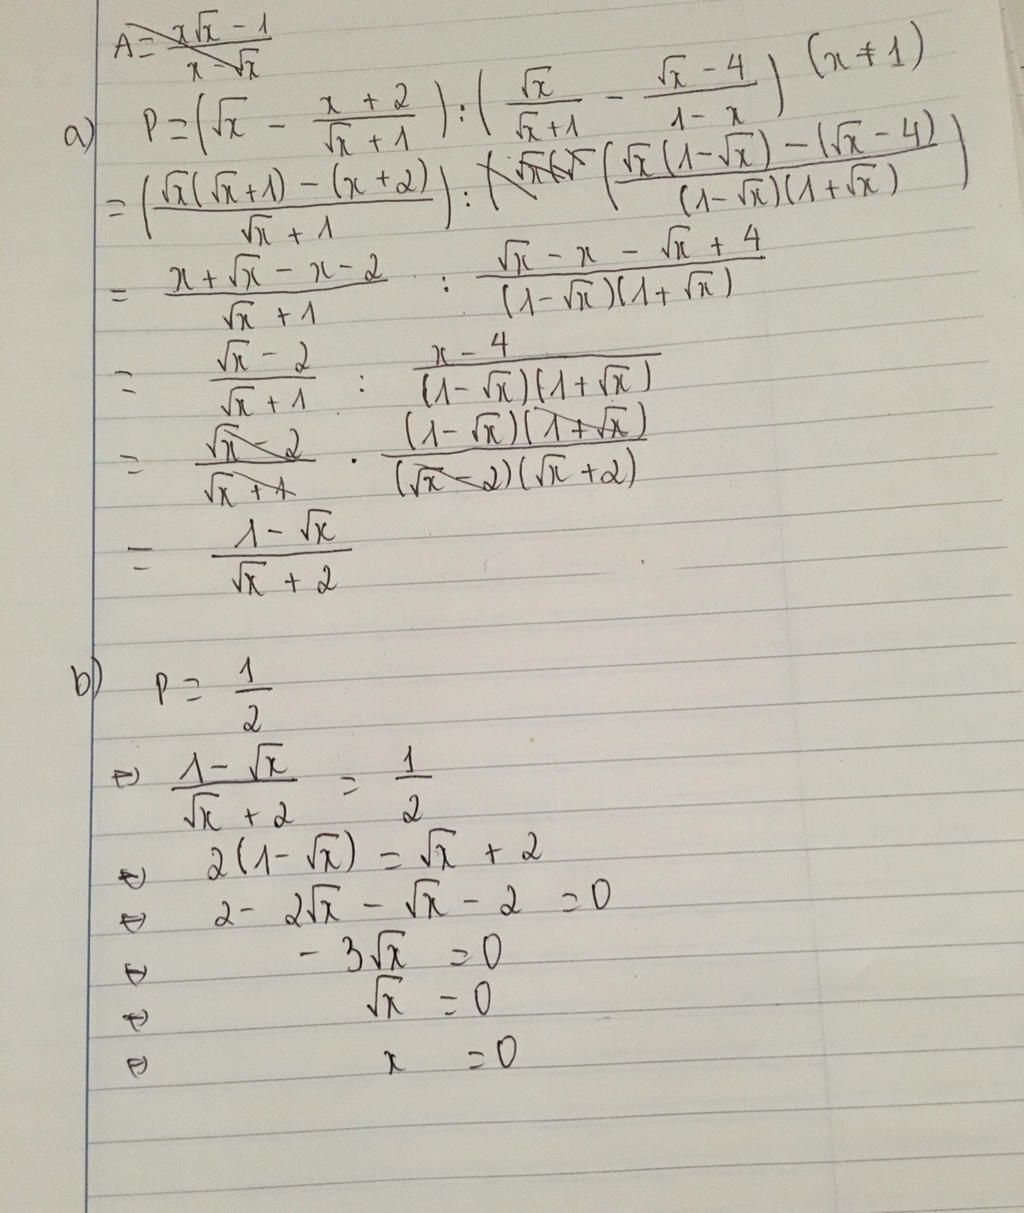 A = (x√x - 1)/(x - √x)
a) P = (√x - (x + 2)/(√x + 1)) : (√x/(√x + 1) - (√x - 4)/(1 - x)) (x ≠ 1)
= ((√x(√x + 1) - (x + 2))/(√x + 1)) : ((√x(1 - √x) - (√x - 4))/((1 - √x)(1 + √x)))
= (x + √x - x - 2)/(√x + 1) : (√x - x - √x + 4)/((1 - √x)(1 + √x))
= (√x - 2)/(√x + 1) : (x - 4)/((1 - √x)(1 + √x))
= (√x - 2)/(√x + 1) . ((1 - √x)(1 + √x))/((√x - 2)(√x + 2))
= (1 - √x)/(√x + 2)
b) P = 1/2
⇔ (1 - √x)/(√x + 2) = 1/2
⇔ 2(1 - √x) = √x + 2
⇔ 2 - 2√x - √x - 2 = 0
⇔ - 3√x = 0
⇔ √x = 0
⇔ x = 0